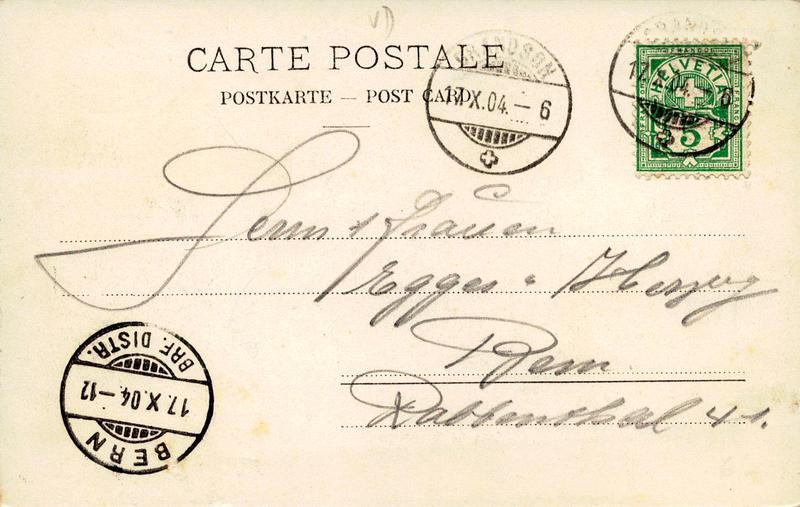 VD
CARTE POSTALE
POSTKARTE — POST CARD
GRANDSON
17.X.04.–6
FRANCO
HELVETIA
5
Frauen
Egger
Herzog
Bern
Rabbenthal 41.
BRF. DISTR.
17.X.04–12
BERN